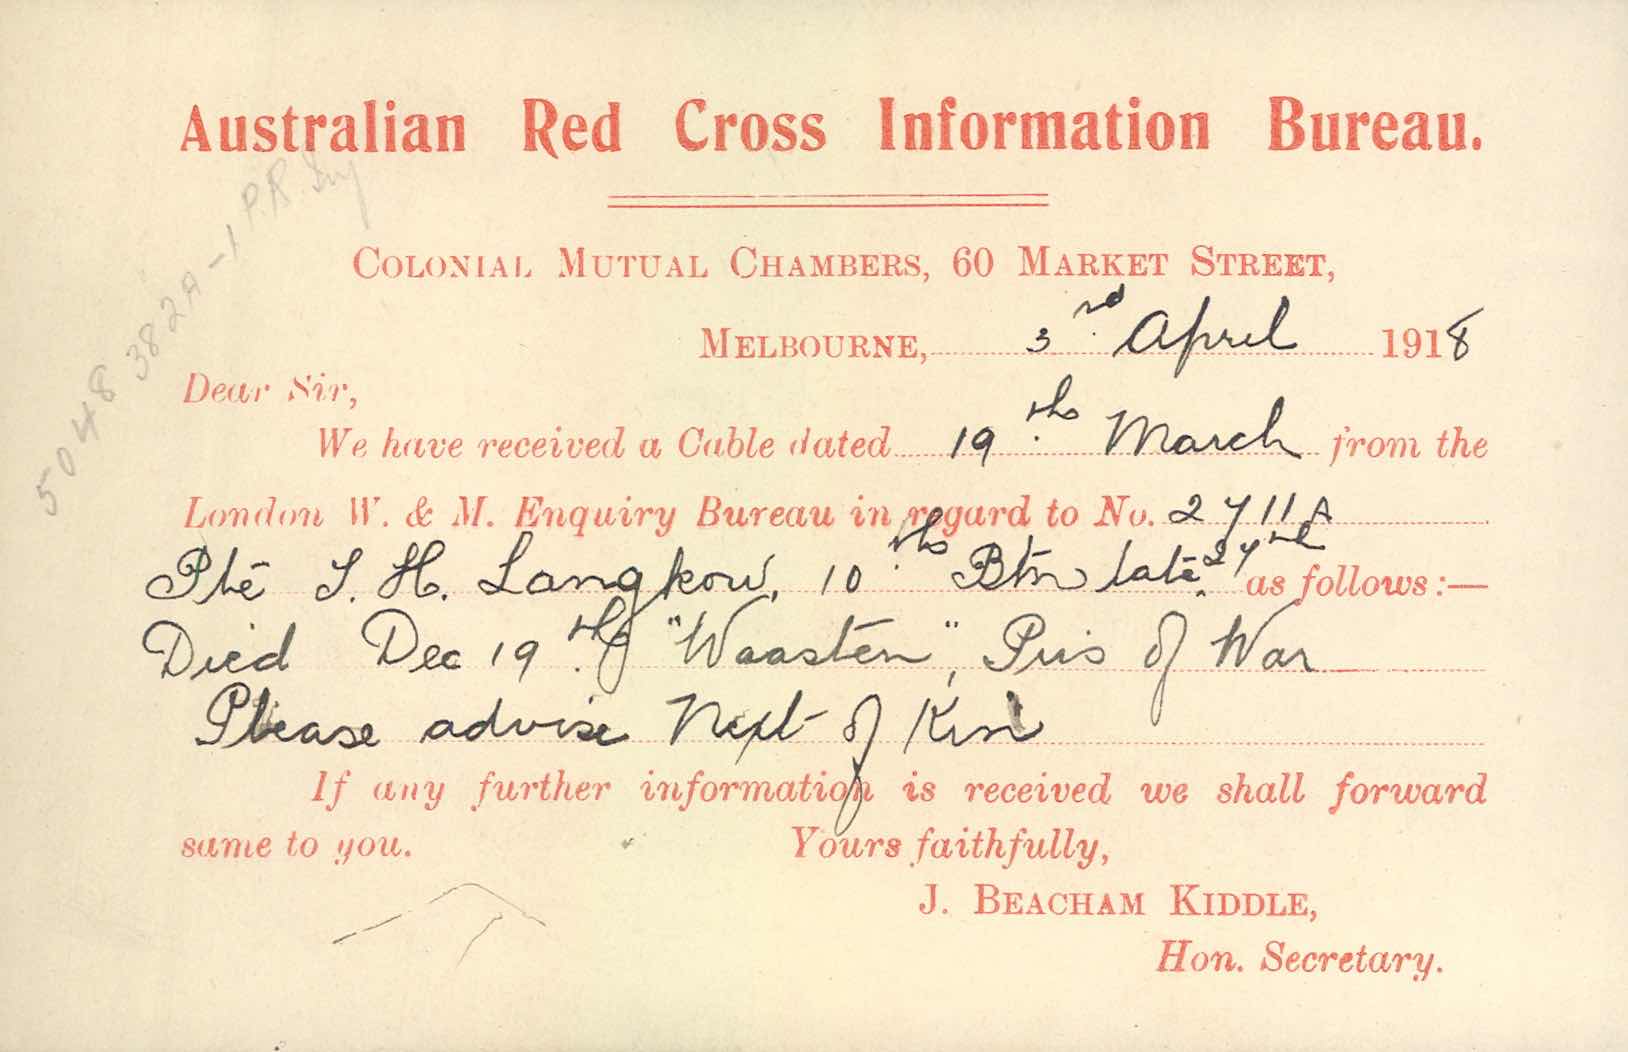 Australian Red Cross Information Bureau.
COLONIAL MUTUAL CHAMBERS, 60 MARKET STREET,
MELBOURNE, 3rd April 1918
Dear Sir,
We have received a Cable dated 19th March from the
London W. & M. Enquiry Bureau in regard to No. 2711A
Pte S. H. Langkow, 10th Btn late 27th as follows:—
Died Dec 19th of "Waasten", Pris of War
Please advise Next of Kin
If any further information is received we shall forward
same to you. Yours faithfully,
J. BEACHAM KIDDLE,
Hon. Secretary.
5048 382A-1 P.R.